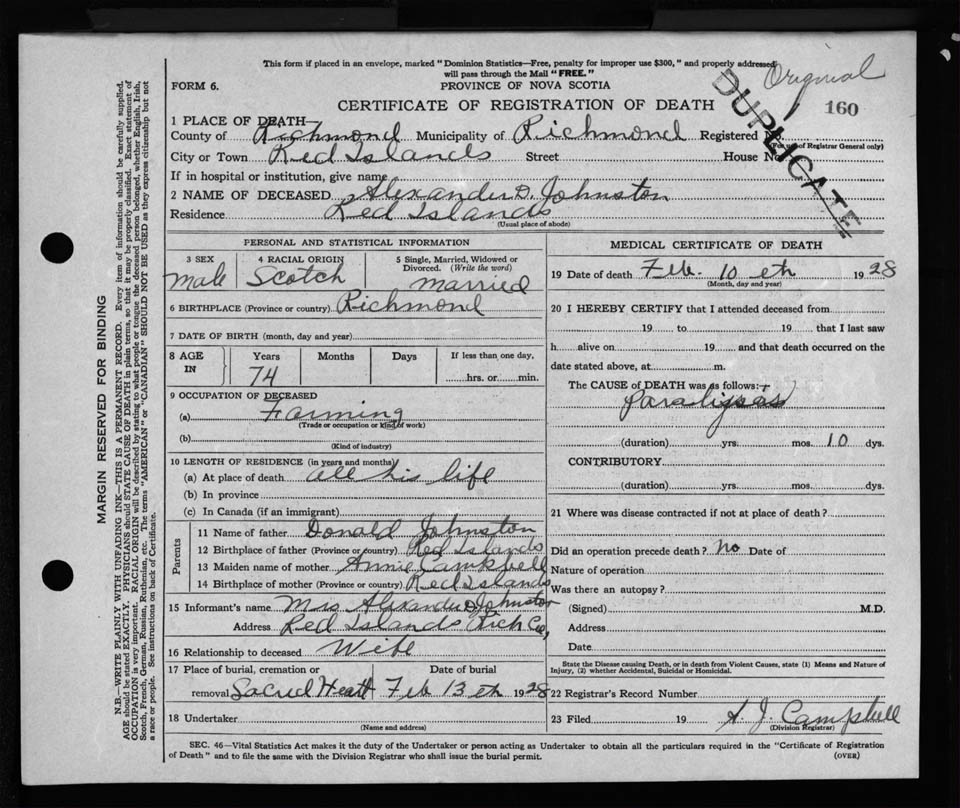 This form if placed in an envelope, marked "Dominion Statistics—Free, penalty for improper use $300," and properly addressed
will pass through the Mail "FREE."
Original
FORM 6.
PROVINCE OF NOVA SCOTIA
DUPLICATE
CERTIFICATE OF REGISTRATION OF DEATH
160
1 PLACE OF DEATH—
County of Richmond Municipality of Richmond Registered No.
(For use of Registrar General only)
City or Town Red Islands Street House No
If in hospital or institution, give name
2 NAME OF DECEASED Alexander D. Johnston
Residence Red Islands
(Usual place of abode)
PERSONAL AND STATISTICAL INFORMATION
3 SEX 4 RACIAL ORIGIN 5 Single, Married, Widowed or Divorced. (Write the word)
male Scotch married
6 BIRTHPLACE (Province or country) Richmond
7 DATE OF BIRTH (month, day and year)
8 AGE IN Years Months Days If less than one day,
74 hrs. or min.
9 OCCUPATION OF DECEASED
(a) Farming
(Trade or occupation or kind of work)
(b)
(Kind of industry)
10 LENGTH OF RESIDENCE (in years and months)
(a) At place of death all his life
(b) In province
(c) In Canada (if an immigrant)
Parents
11 Name of father Donald Johnston
12 Birthplace of father (Province or country) Red Islands
13 Maiden name of mother Annie Camkbell
14 Birthplace of mother (Province or country) Red Islands,
15 Informant's name Mrs Alexander D Johnston
Address Red Islands Rich Co,
16 Relationship to deceased Wife
17 Place of burial, cremation or Date of burial
removal Sacred Heart Feb 13 eth 1928
18 Undertaker
(Name and address)
MEDICAL CERTIFICATE OF DEATH
19 Date of death Feb. 10 eth 1928
(Month, day and year)
20 I HEREBY CERTIFY that I attended deceased from
19 to 19 that I last saw
h alive on 19 and that death occurred on the
date stated above, at m.
The CAUSE of DEATH was as follows:
Paralipsas
(duration) yrs. mos. 10 dys.
CONTRIBUTORY
(duration) yrs. mos. dys.
21 Where was disease contracted if not at place of death?
Did an operation precede death? no Date of
Nature of operation
Was there an autopsy?
(Signed) M.D.
Address
Date
State the Disease causing Death, or in death from Violent Causes, state (1) Means and Nature of
Injury, (2) whether Accidental, Suicidal or Homicidal.
22 Registrar's Record Number
23 Filed 19 A. J. Campbell
(Division Registrar)
SEC. 46—Vital Statistics Act makes it the duty of the Undertaker or person acting as Undertaker to obtain all the particulars required in the "Certificate of Registration
of Death" and to file the same with the Division Registrar who shall issue the burial permit. (OVER)
MARGIN RESERVED FOR BINDING
N.B.—WRITE PLAINLY WITH UNFADING INK—THIS IS A PERMANENT RECORD. Every item of information should be carefully supplied.
AGE should be stated EXACTLY. PHYSICIANS should STATE CAUSE OF DEATH in plain terms, so that it may be properly classified. Exact statement of
OCCUPATION is very important. RACIAL ORIGIN will be described by stating to what people or tongue the deceased person belonged, whether English, Irish,
Scotch, French, German, Russian, Ruthenian, etc. The terms "AMERICAN" or "CANADIAN" SHOULD NOT BE USED as they express citizenship but not
a race or people. See instructions on back of Certificate.